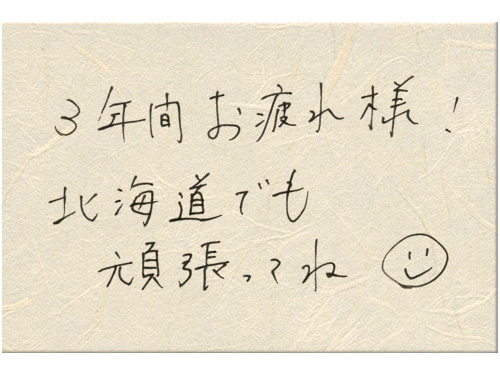 3年間お疲れ様!
北海道でも
頑張ってね